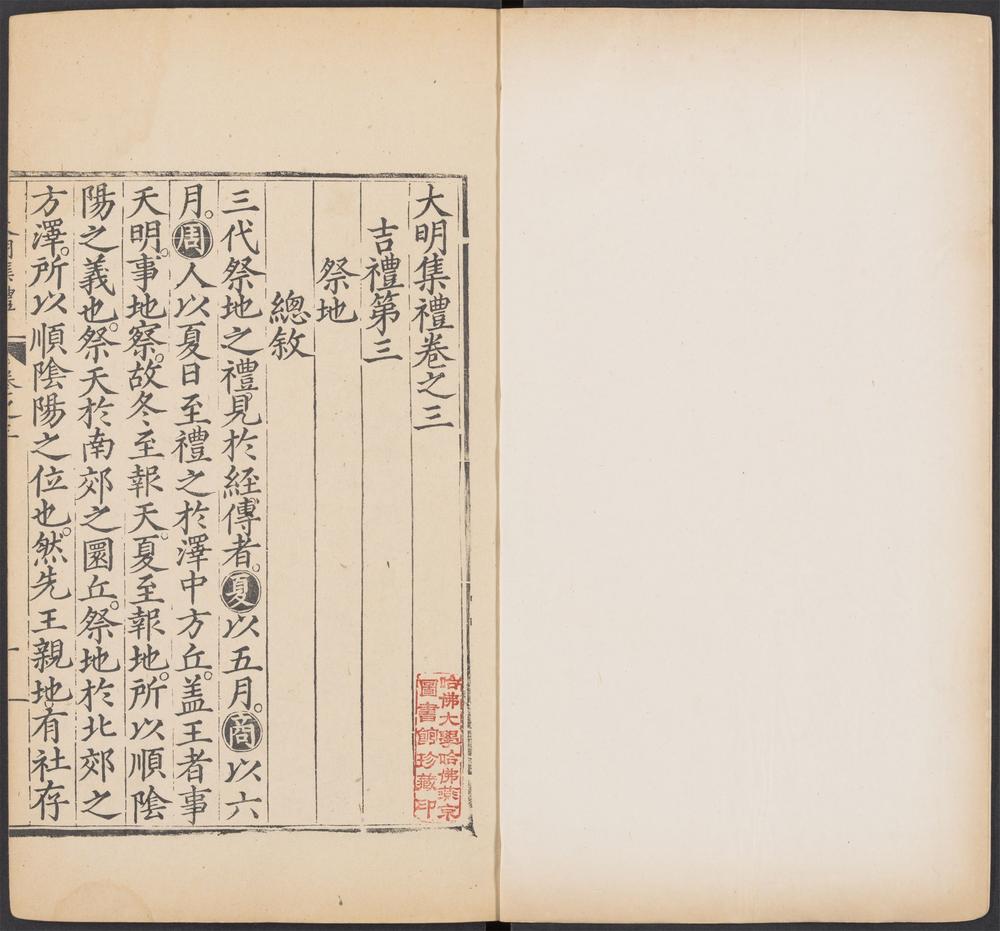 大明集禮卷之三
吉禮第三
祭地
總敘
三代祭地之禮見於經傳者。夏以五月。商以六
月。周人以夏日至禮之於澤中方丘。盖王者事
天明。事地察。故冬至報天。夏至報地。所以順陰
陽之義也。祭天於南郊之圜丘。祭地於北郊之
方澤。所以順陰陽之位也。然先王親地。有社存
哈佛大學哈佛燕京
圖書館珍藏印